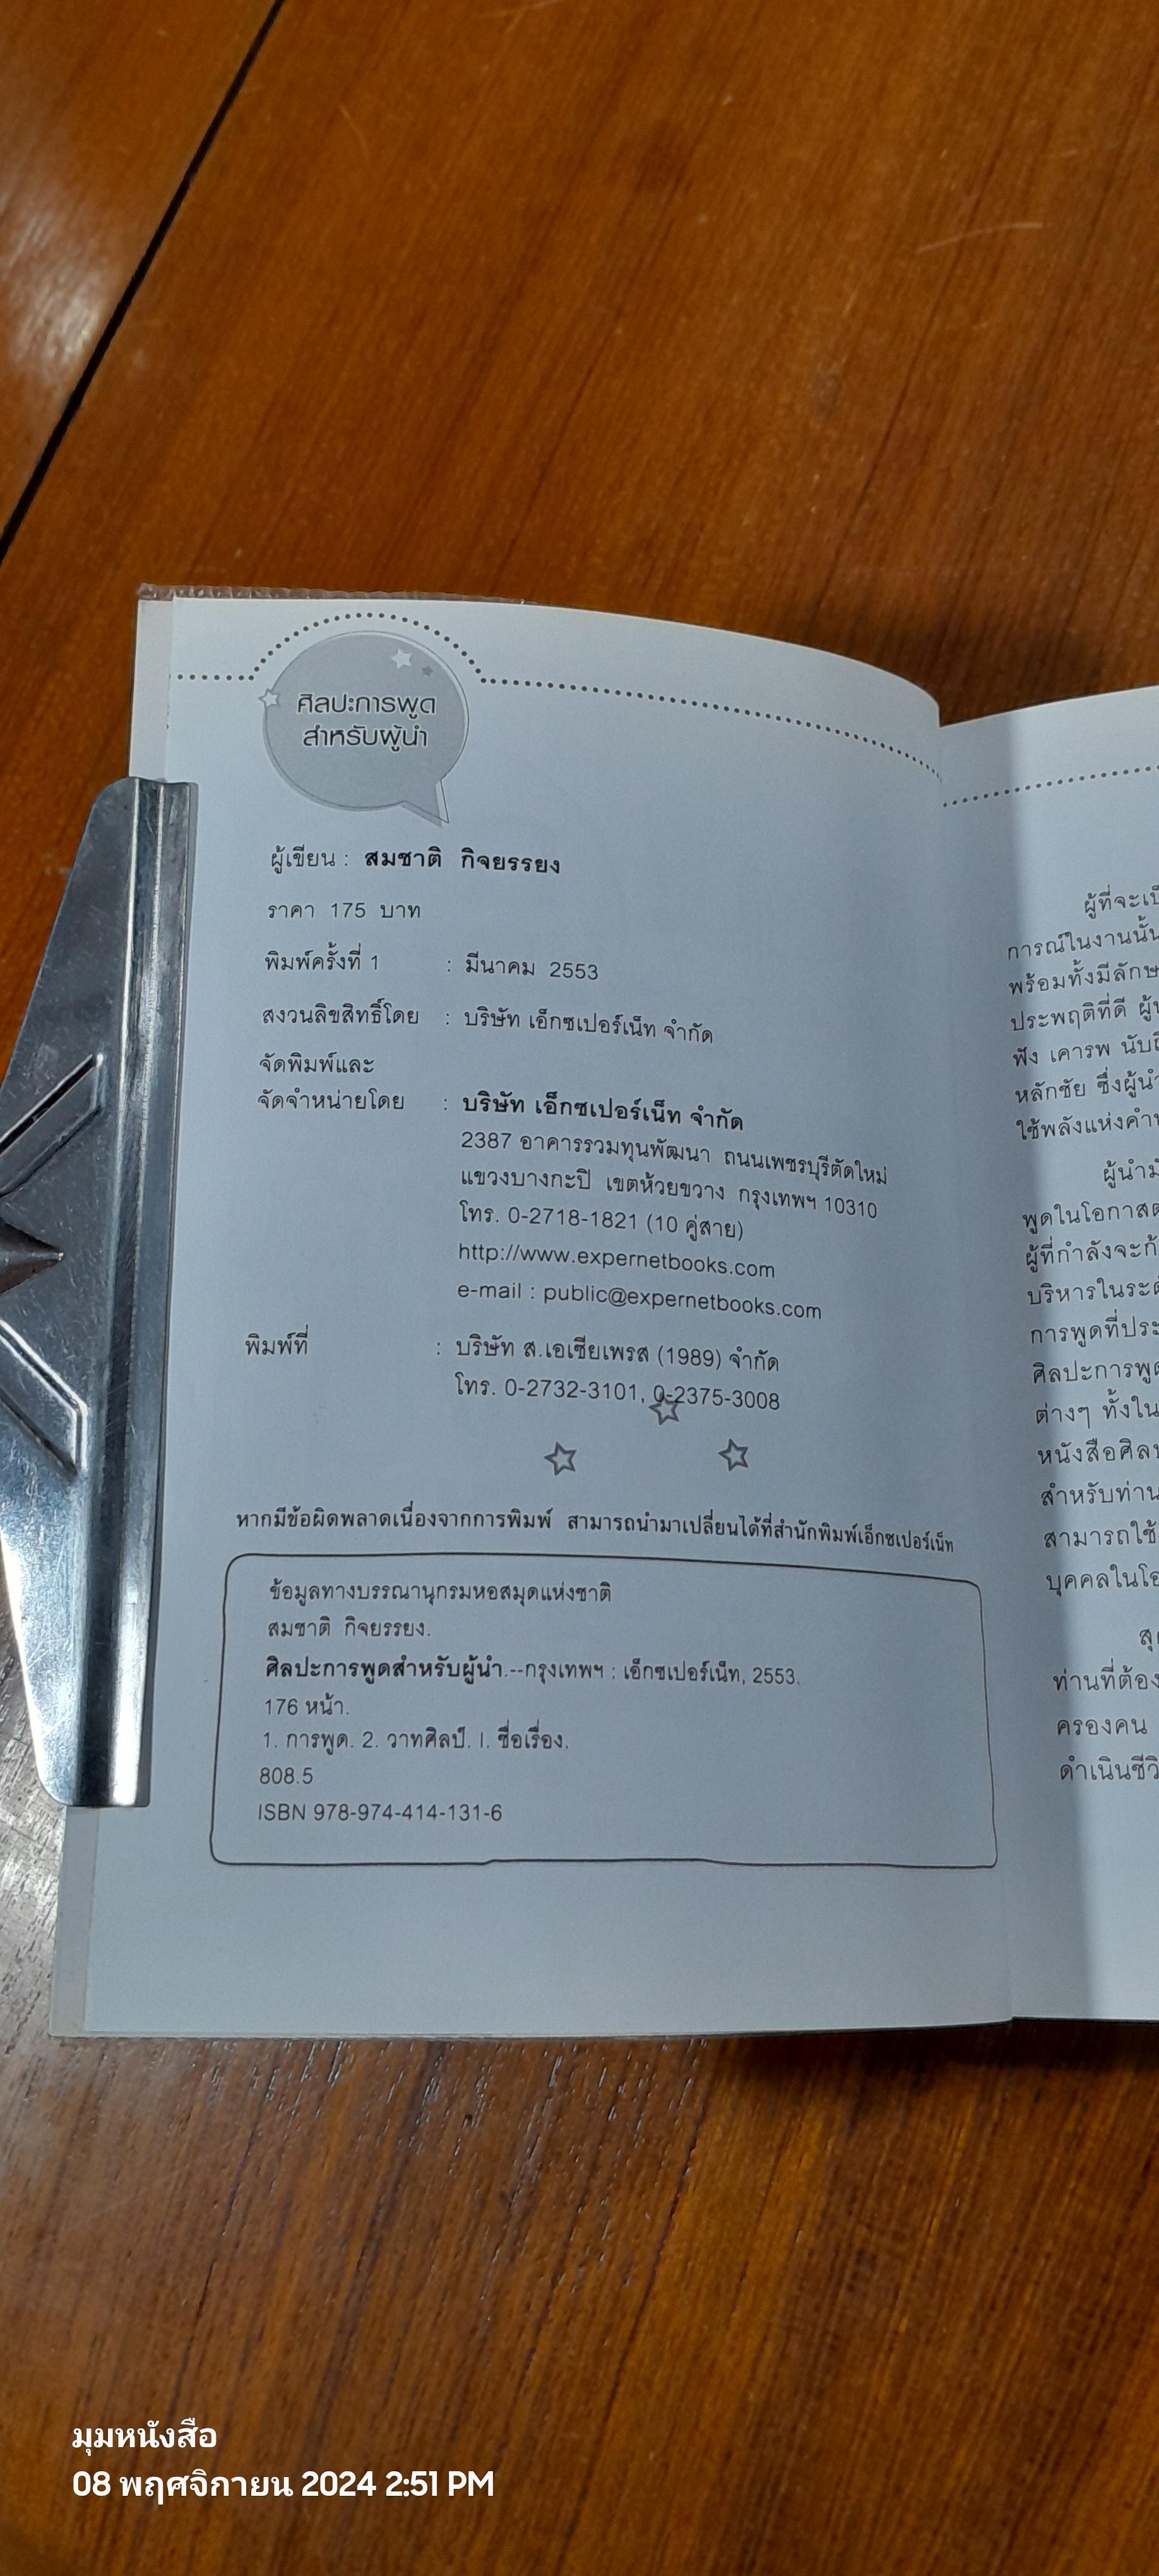 ศิลปะการพูด
สำหรับผู้นำ
ผู้เขียน : สมชาติ กิจยรรยง
ราคา 175 บาท
พิมพ์ครั้งที่ 1 : มีนาคม 2553
สงวนลิขสิทธิ์โดย : บริษัท เอ็กซเปอร์เน็ท จำกัด
จัดพิมพ์และ
จัดจำหน่ายโดย : บริษัท เอ็กซเปอร์เน็ท จำกัด
2387 อาคารรวมทุนพัฒนา ถนนเพชรบุรีตัดใหม่
แขวงบางกะปิ เขตห้วยขวาง กรุงเทพฯ 10310
โทร. 0-2718-1821 (10 คู่สาย)
http://www.expernetbooks.com
e-mail : public@expernetbooks.com
พิมพ์ที่ : บริษัท ส.เอเซียเพรส (1989) จำกัด
โทร. 0-2732-3101, 0-2375-3008
หากมีข้อผิดพลาดเนื่องจากการพิมพ์ สามารถนำมาเปลี่ยนได้ที่สำนักพิมพ์เอ็กซเปอร์เน็ท
ข้อมูลทางบรรณานุกรมหอสมุดแห่งชาติ
สมชาติ กิจยรรยง.
ศิลปะการพูดสำหรับผู้นำ.--กรุงเทพฯ : เอ็กซเปอร์เน็ท, 2553.
176 หน้า.
1. การพูด. 2. วาทศิลป์. I. ชื่อเรื่อง.
808.5
ISBN 978-974-414-131-6
ผู้ที่จะเป็
การณ์ในงานนั้น
พร้อมทั้งมีลักษ
ประพฤติที่ดี
ฟัง เคารพ
หลักชัย ซึ่งผู้นำ
ใช้พลังแห่ง
ผู้นำ
พูดในโอกาส
ผู้ที่กำลังจะ
บริหารในระ
การพูดที่ประ
ศิลปะการพูด
ต่างๆ ทั้งใน
หนังสือศิลป
สำหรับท่าน
สามารถใช้
บุคคลในโอ
สุ
ท่านที่ต้อง
ครองคน
ดำเนินชีวิ
มุมหนังสือ
08 พฤศจิกายน 2024 2:51 PM